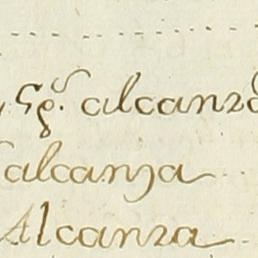 alcanza
alcanza
Alcanza